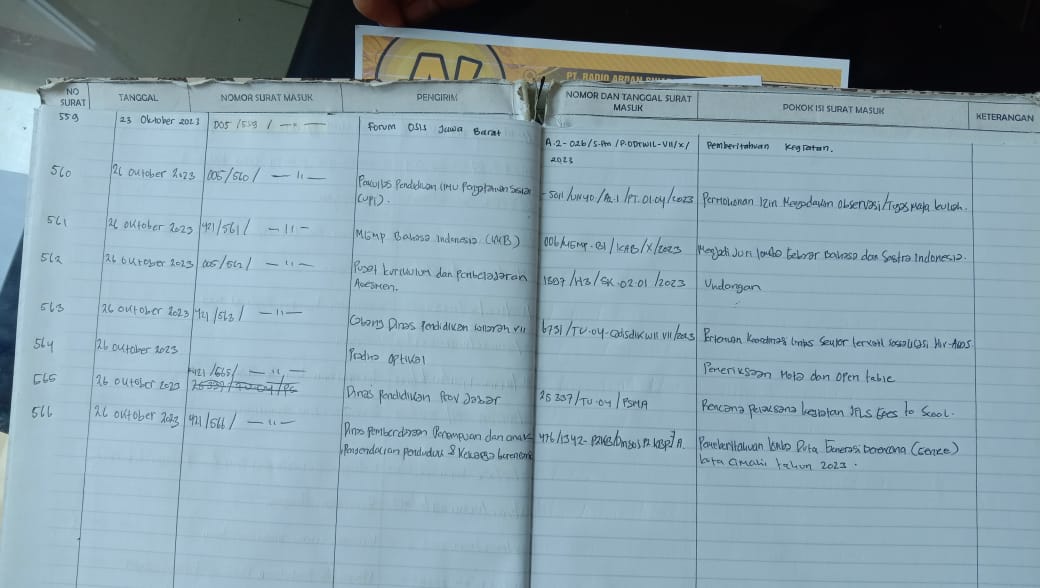 PT. RADIO ARDAN
NO SURAT | TANGGAL | NOMOR SURAT MASUK | PENGIRIM | NOMOR DAN TANGGAL SURAT MASUK | POKOK ISI SURAT MASUK | KETERANGAN
559 | 23 Oktober 2023 | 005 /559 / — " — | Forum OSIS Jawa Barat | A.2-026/S.Pm /P.ODTWIL-VII/X/ 2023 | Pemberitahuan Kegiatan.
560 | 26 Oktober 2023 | 005/560 / — " — | Fakultas Pendidikan Ilmu Pengetahuan Sosial (UPI). | 5011/UN40/A2.1 /PT.01.04/2023 | Permohonan Izin Mengadakan Observasi/Tugas Mata kuliah.
561 | 26 Oktober 2023 | 421/561/ — " — | MGMP Bahasa Indonesia (KKB) | 006/MGMP.BI/KAB/X/2023 | Menjadi Juri lomba Gebyar Bahasa dan Sastra Indonesia.
562 | 26 Oktober 2023 | 005/562/ — " — | Pusat kurikulum dan Pembelajaran Asesmen. | 1587/H3/SK.02.01/2023 | Undangan
563 | 26 Oktober 2023 | 421/563/ — " — | Cabang Dinas Pendidikan wilayah VII | 6731/TU.04-Cadisdikwil VII/2023 | Pertemuan Koordinasi Lintas Sektor terkait Sosialisasi HIV-AIDS
564 | 26 Oktober 2023 | Optikal | Pemeriksaan Mata dan Open table
565 | 26 Oktober 2023 | 421/565/ — " — | Dinas Pendidikan Prov Jabar | 25337/TU.04/PSMA | Rencana kegiatan Goes to Scool.
566 | 26 Oktober 2023 | 421/566/ — " — | Dinas Pemberdayaan Perempuan dan anak Pengendalian Penduduk & Keluarga berencana | Pemberitahuan lomba Duta Generasi berencana (Genre) kota Cimahi tahun 2023.